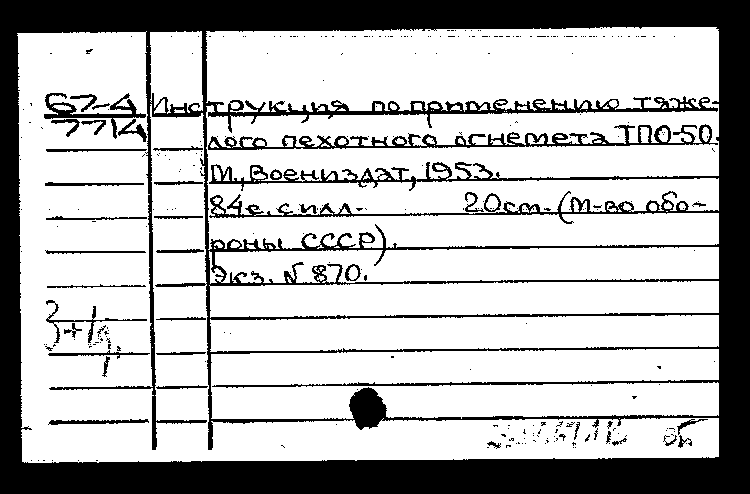 67-4 Инструкция по применению тяже-
7714 лого пехотного огнемета ТПО-50.
М., Воениздат, 1953.
84с. с илл. 20см. (М-во обо-
роны СССР).
Экз. № 870.
3+1д.